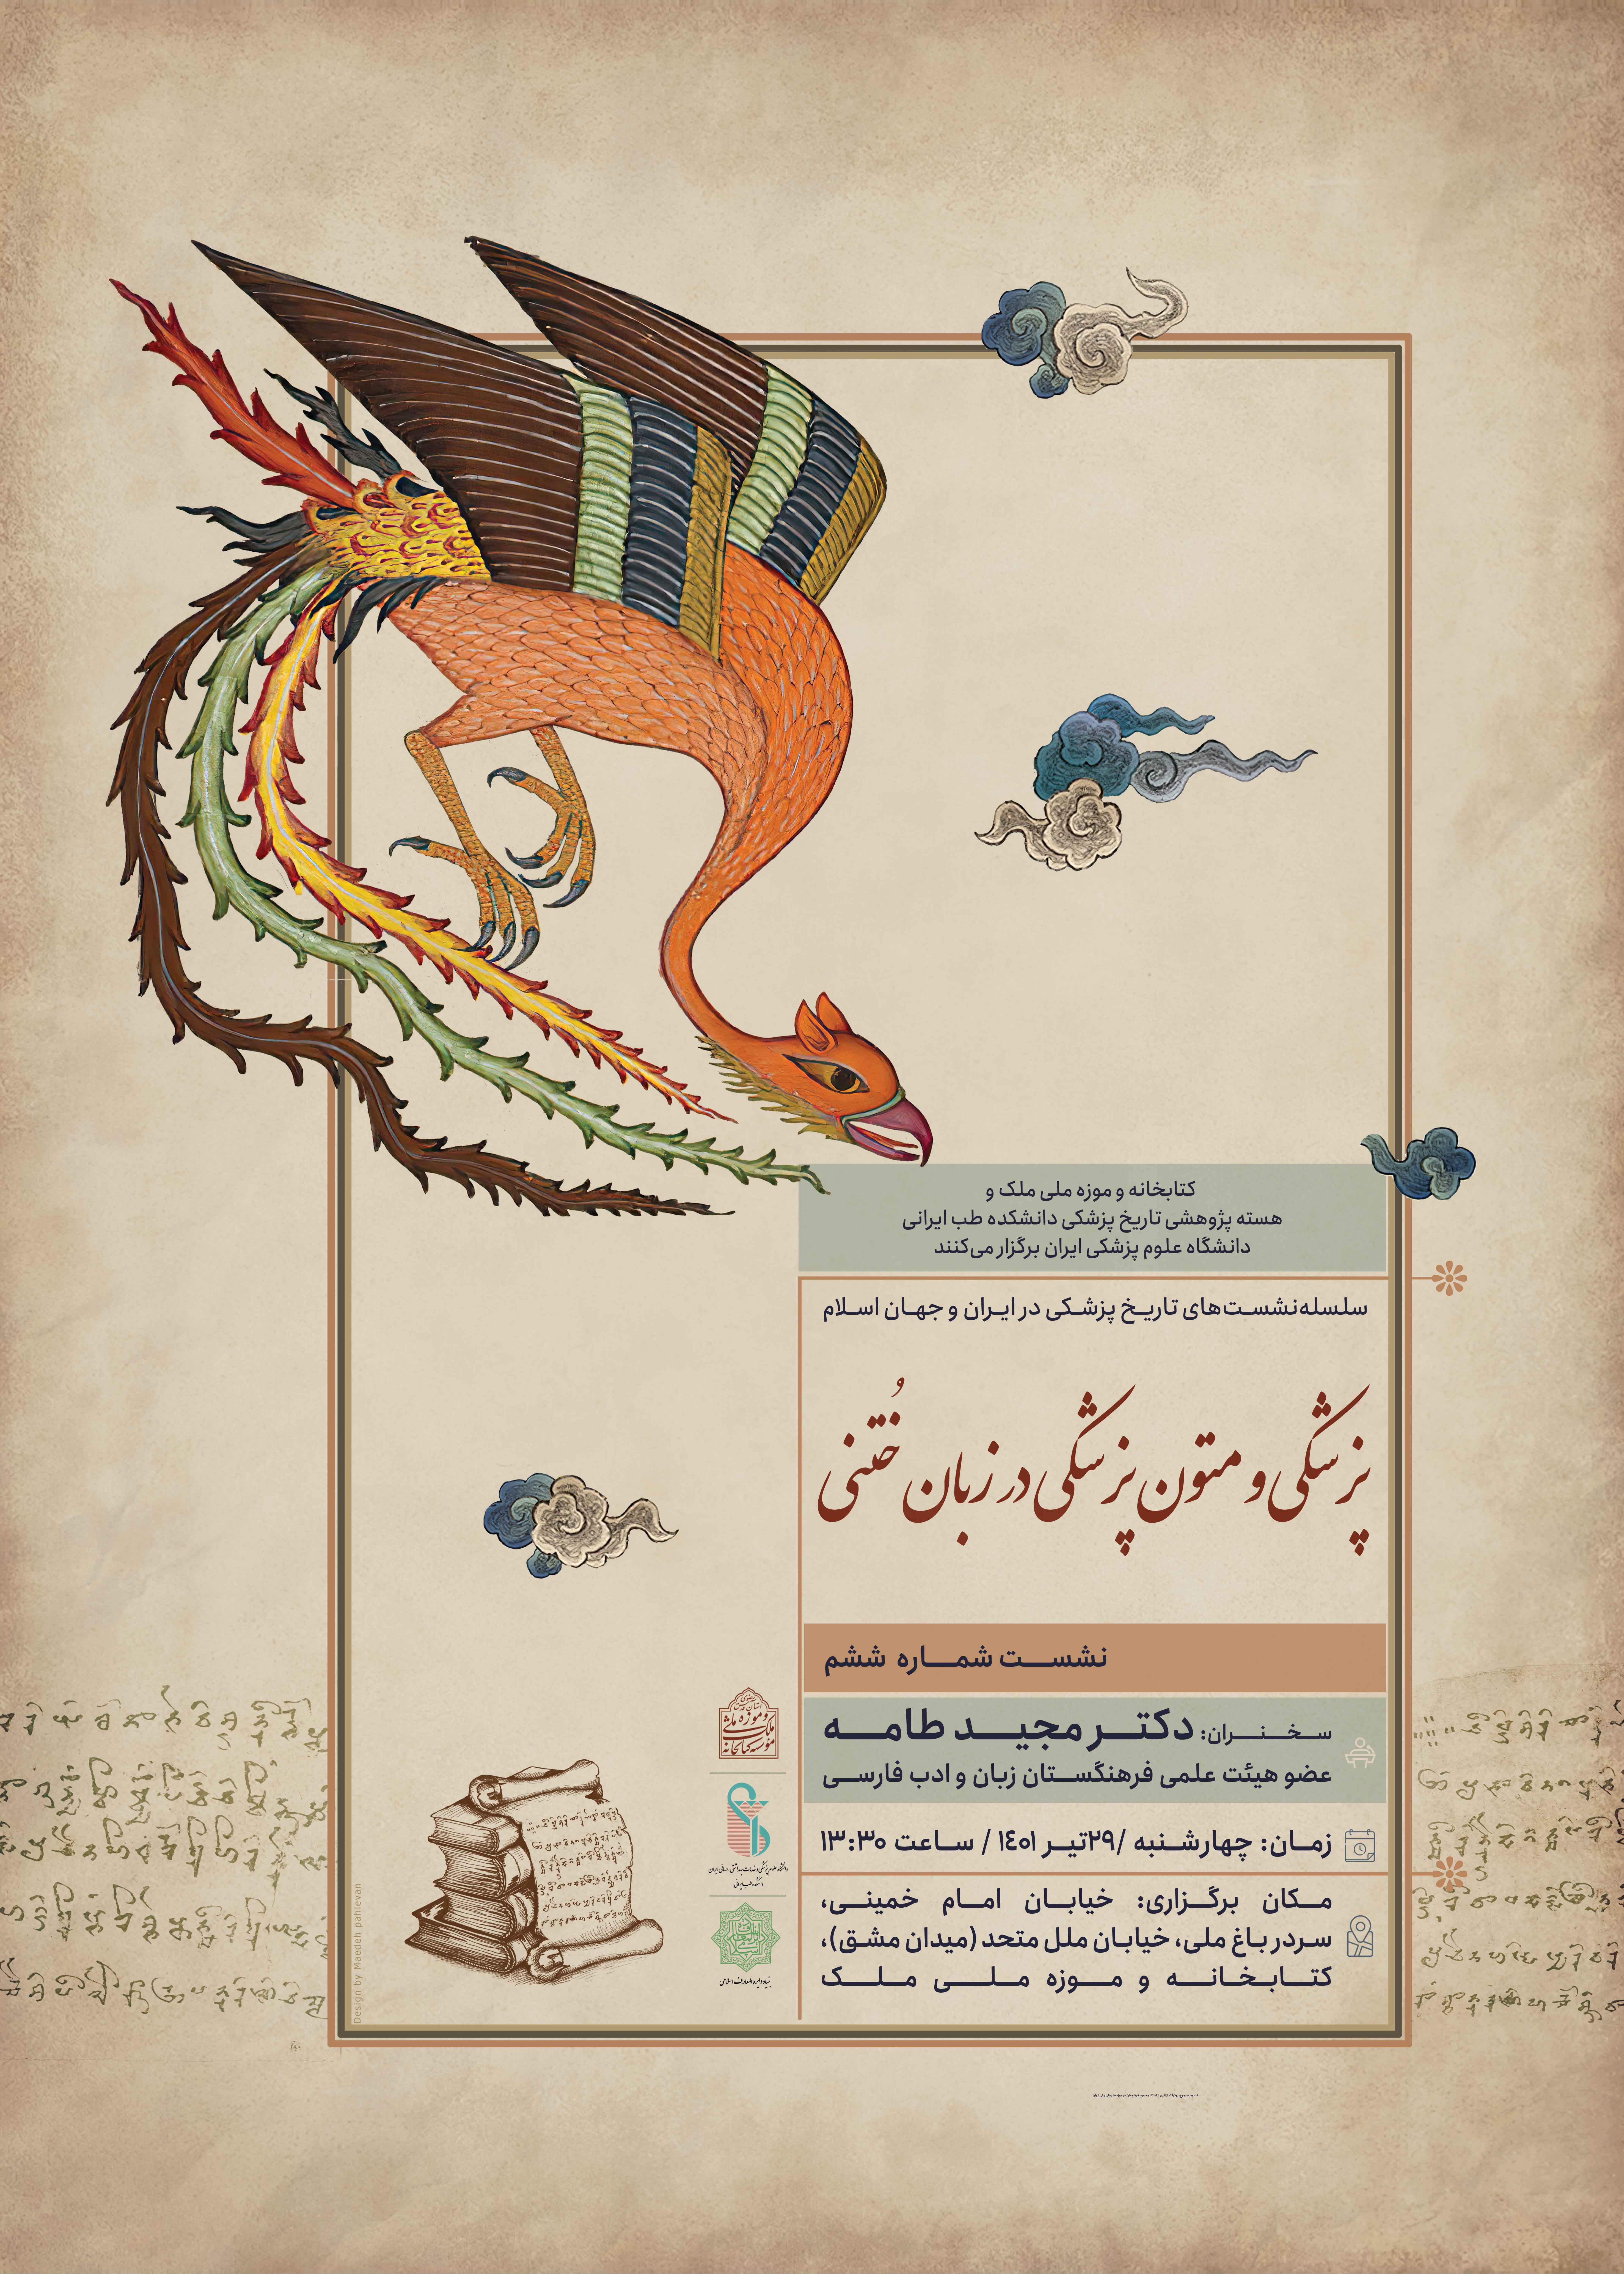 کتابخانه و موزه ملی ملک و
هسته پژوهشی تاریخ پزشکی دانشکده طب ایرانی
دانشگاه علوم پزشکی ایران برگزار می‌کنند
سلسله‌نشست‌های تاریخ پزشکی در ایران و جهان اسلام
پزشکی و متون پزشکی در زبان خُتنی
نشست شماره ششم
سخنران: دکتر مجید طامه
عضو هیئت علمی فرهنگستان زبان و ادب فارسی
زمان: چهارشنبه /۲۹تیر ۱۴۰۱ / ساعت ۱۳:۳۰
مکان برگزاری: خیابان امام خمینی،
سردر باغ ملی، خیابان ملل متحد (میدان مشق)،
کتابخانه و موزه ملی ملک
بنیاد دایره المعارف اسلامی
Design by Maedeh pahlevan